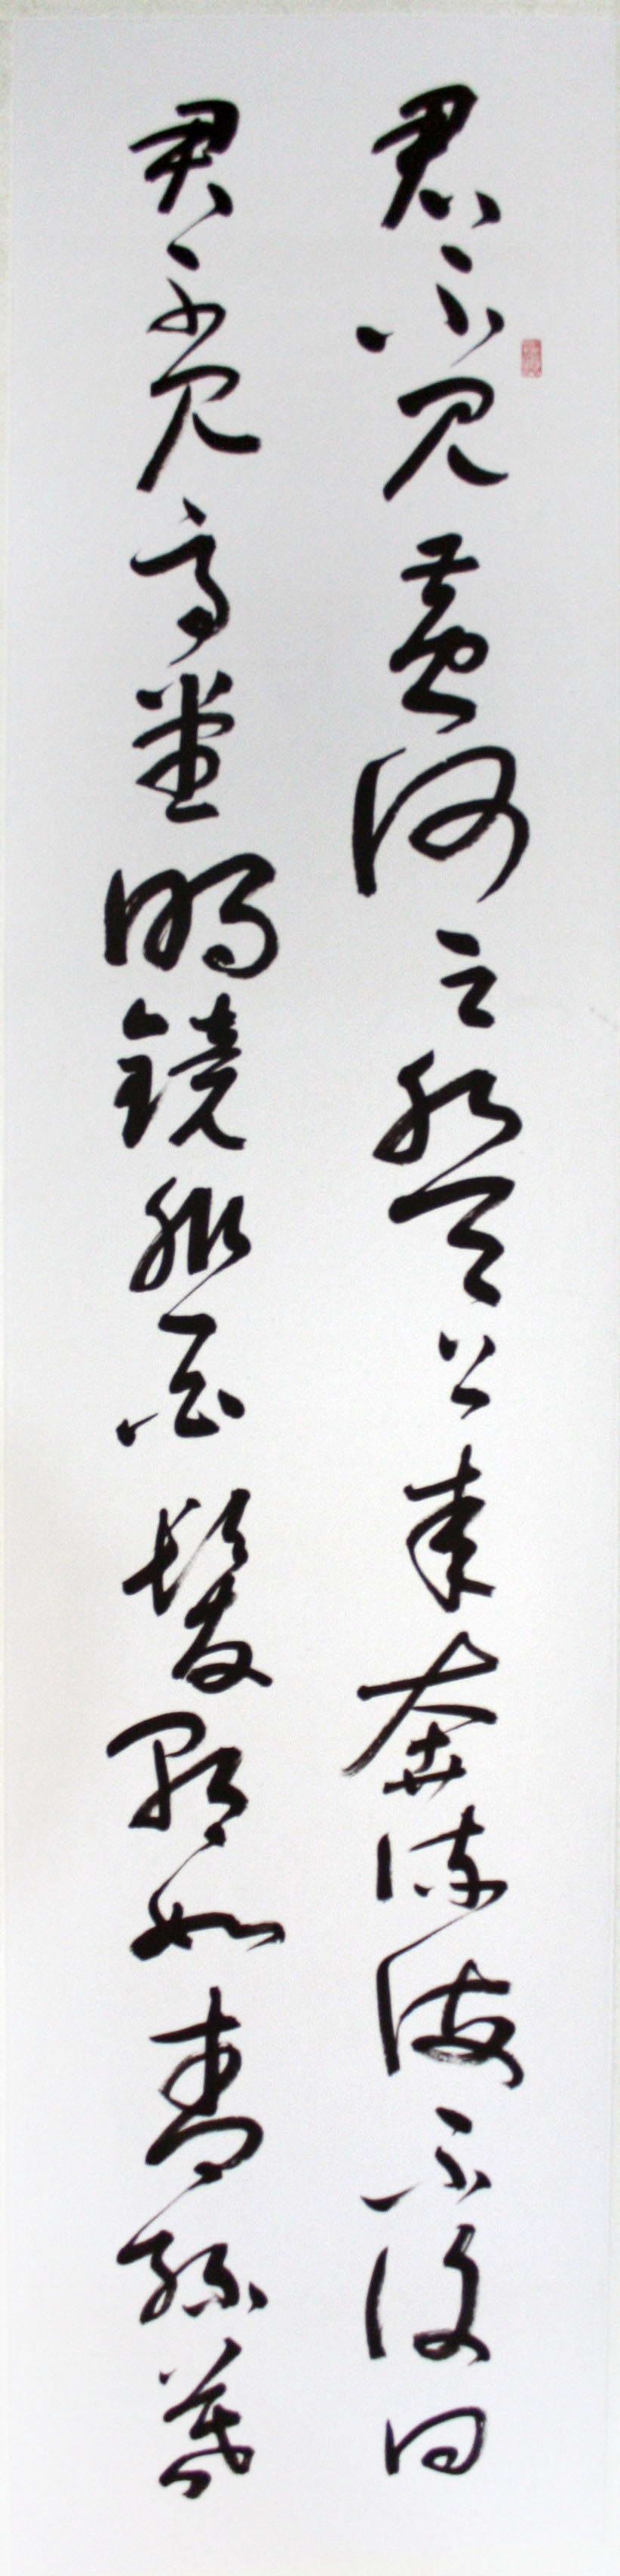 君不見黃河之水天上來奔流海不復回
君不見高堂明鏡悲白髮朝如青絲暮